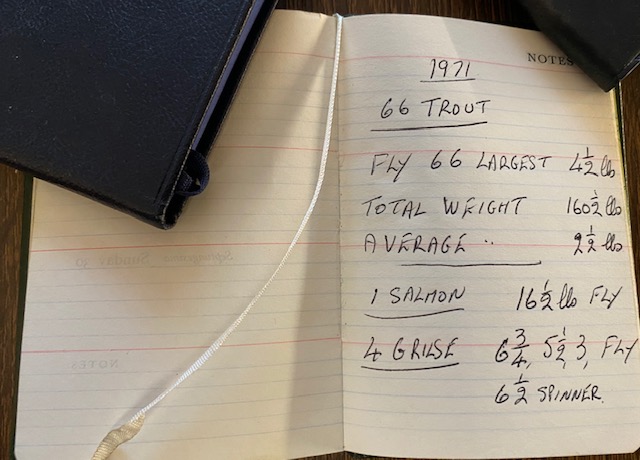 NOTES
1971
66 TROUT
FLY 66 LARGEST 4½ lbs
TOTAL WEIGHT 160½ lbs
AVERAGE " 2½ lbs
1 SALMON 16½ lbs FLY
4 GRILSE 6¾, 5½, 3, FLY
6½ SPINNER.
NOTES